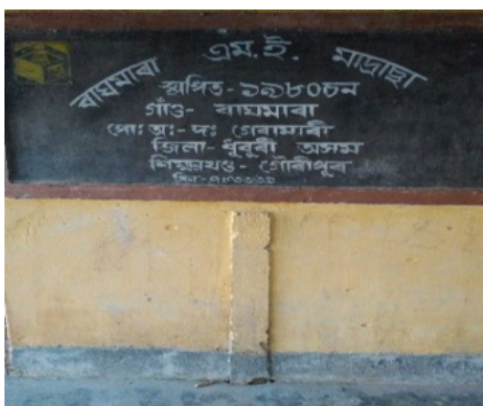 বাঘমাৰা এম.ই. মাদ্ৰাছা
স্থাপিত - ১৯৮০চন
গাঁও - বাঘমাৰা
পো: আ:- দ: গেৰামাৰী
জিলা - ধুবুৰী অসম
শিক্ষাখণ্ড - গৌৰীপুৰ
পিন-